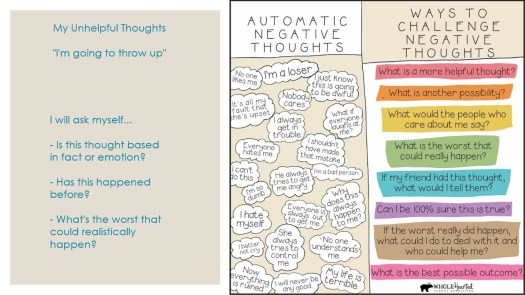 My Unhelpful Thoughts
"I'm going to throw up"
I will ask myself...
- Is this thought based
in fact or emotion?
- Has this happened
before?
- What's the worst that
could realistically
happen?
AUTOMATIC
NEGATIVE
THOUGHTS
No one
likes me
I'm a loser
I just know
this is going
to be awful
It's all my
fault that
she's upset
Nobody
cares
I always
get in
trouble
What if
everyone
laughs at
me?
Everyone
hates me
I shouldn't
have made
that mistake
I can't
do this
I'm so
dumb
He always
tries to get
me angry
I'm a bad person
I hate
myself
Everyone is
always out
to get me
Why
does this
always
happen to
me?
I better
not cry
She
always
tries to
control
me
No one
understands
me
Now
everything
is ruined
I will never be
any good
My life is
terrible
WAYS TO
CHALLENGE
NEGATIVE
THOUGHTS
What is a more helpful thought?
What is another possibility?
What would the people who
care about me say?
What is the worst that
could really happen?
If my friend had this thought,
what would I tell them?
Can I be 100% sure this is true?
If the worst really did happen,
what could I do to deal with it and
who could help me?
What is the best possible outcome?
WHOLE Hearted